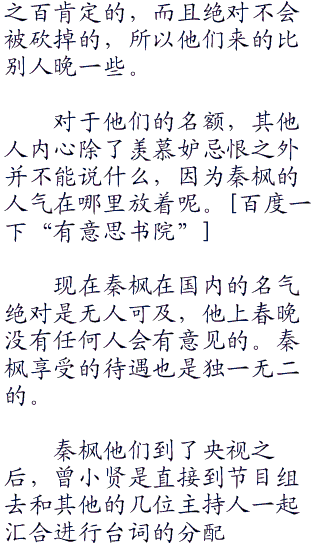 之百肯定的，而且绝对不会
被砍掉的，所以他们来的比
别人晚一些。
对于他们的名额，其他
人内心除了羡慕妒忌恨之外
并不能说什么，因为秦枫的
人气在哪里放着呢。[百度一
下“有意思书院”]
现在秦枫在国内的名气
绝对是无人可及，他上春晚
没有任何人会有意见的。秦
枫享受的待遇也是独一无二
的。
秦枫他们到了央视之
后，曾小贤是直接到节目组
去和其他的几位主持人一起
汇合进行台词的分配